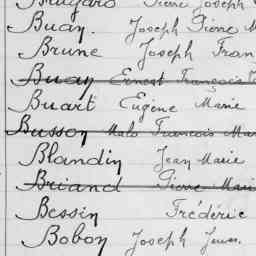 Joseph
Buay. Joseph Pierre M
Brune Joseph Fran
Buay Ernest François
Buart Eugène Marie
Busson Malo François Mar
Blandin Jean Marie
Briand Pierre Mari
Bessin Frédéric
Bobon Joseph